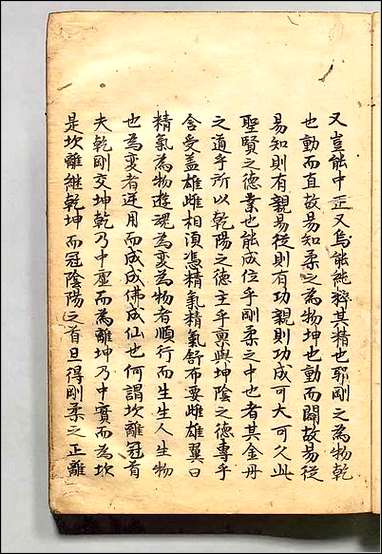 又豈能中正又烏能純粹其精也耶剛之為物乾
也動而直故易知柔之為物坤也動而闢故易從
易知則有親易從則有功親則功成可大可久此
聖賢之德業也能成位乎剛柔之中也者其金丹
之道乎所以乾陽之德主乎稟與坤陰之德專乎
含受盖雄雌相湏憑精氣精氣舒布要雌雄翼曰
精氣為物遊魂為变為物者順行而生生人生物
也為变者逆用而成成佛成仙也何謂坎離冠首
夫乾剛交坤乾乃中虛而為離坤乃中實而為坎
是坎離継乾坤而冠陰陽之首旦得剛柔之正離